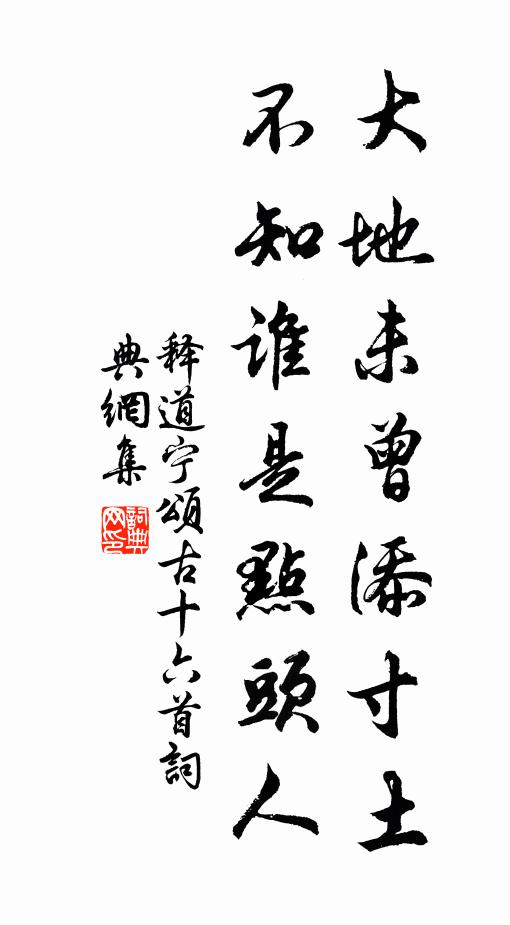 大地未曾添寸土
不知誰是點頭人
释道宁頌古十六首詞
典網集
詞典
网印